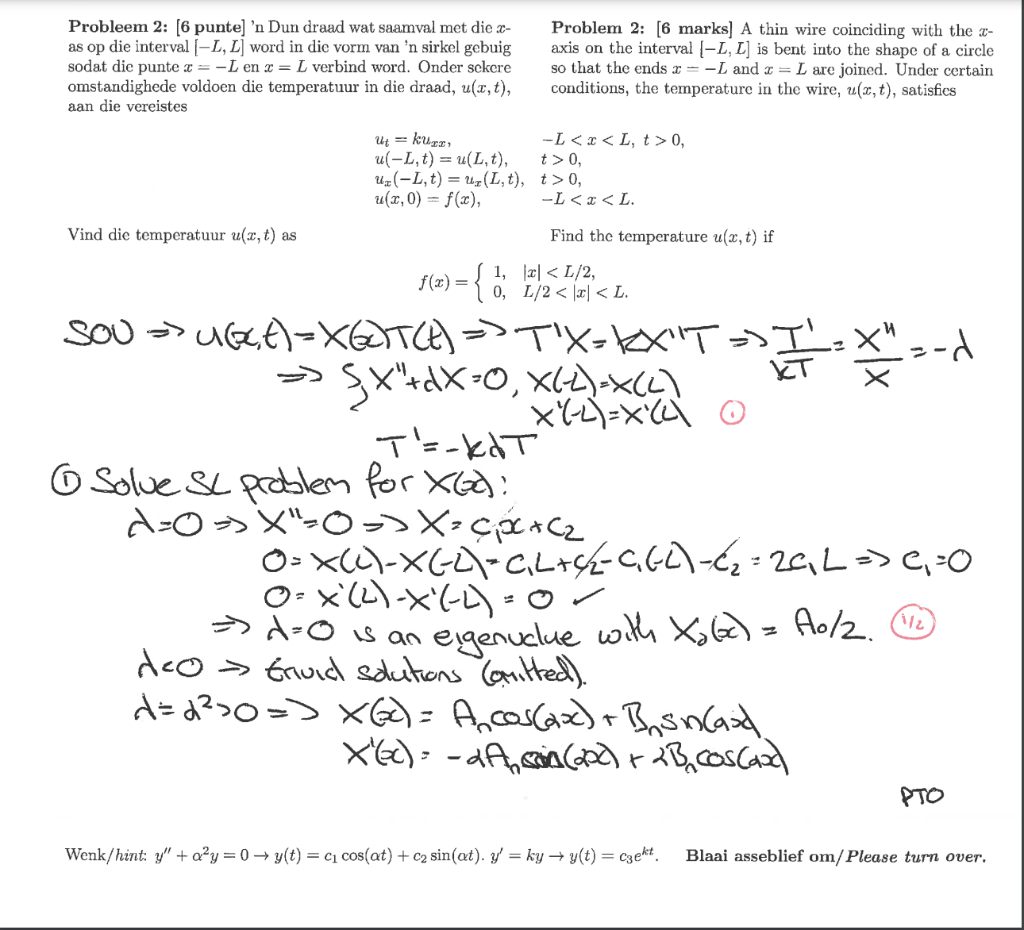 Probleem 2: [6 punte] 'n Dun draad wat saamval met die x-
as op die interval [−L, L] word in die vorm van 'n sirkel gebuig
sodat die punte x = −L en x = L verbind word. Onder sekere
omstandighede voldoen die temperatuur in die draad, u(x, t),
aan die vereistes
Problem 2: [6 marks] A thin wire coinciding with the x-
axis on the interval [−L, L] is bent into the shape of a circle
so that the ends x = −L and x = L are joined. Under certain
conditions, the temperature in the wire, u(x, t), satisfies
u_t = ku_xx, −L < x < L, t > 0,
u(−L, t) = u(L, t), t > 0,
u_x(−L, t) = u_x(L, t), t > 0,
u(x, 0) = f(x), −L < x < L.
Vind die temperatuur u(x, t) as
Find the temperature u(x, t) if
f(x) = { 1, |x| < L/2,
0, L/2 < |x| < L.
SOV ⇒ u(x,t) = X(x)T(t) ⇒ T'X = kX''T ⇒ T'/kT = X''/X = −λ
⇒ { X'' + λX = 0, X(−L) = X(L)
X'(−L) = X'(L) ①
T' = −kλT
① Solve SL problem for X(x):
λ=0 ⇒ X''=0 ⇒ X = c₁x + c₂
0 = X(L) − X(−L) = c₁L + c₂ − c₁(−L) − c₂ = 2c₁L ⇒ c₁ = 0
0 = X'(L) − X'(−L) = 0 ✓
⇒ λ=0 is an eigenvalue with X₀(x) = A₀/2. 1/2
λ<0 ⇒ trivial solutions (omitted).
λ = α² > 0 ⇒ X(x) = Aₙcos(αx) + Bₙsin(αx)
X'(x) = −αAₙsin(αx) + αBₙcos(αx)
PTO
Wenk/hint: y'' + α²y = 0 → y(t) = c₁ cos(αt) + c₂ sin(αt). y' = ky → y(t) = c₃e^{kt}. Blaai asseblief om/Please turn over.